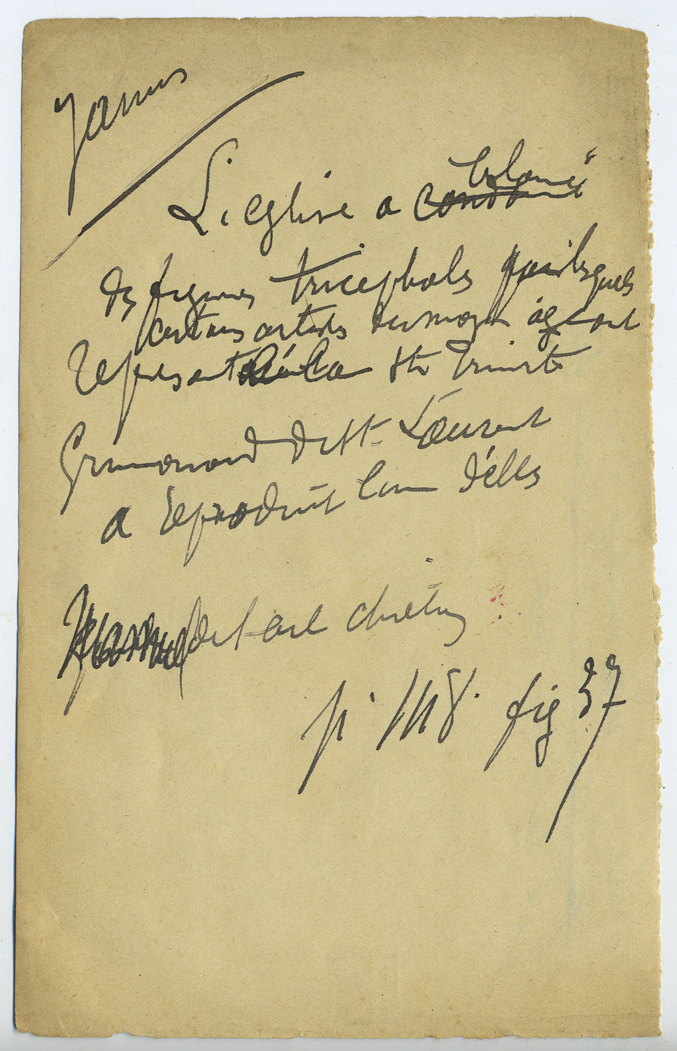 Janus
L'église a condamné blamé
des figures tricephales par lesquels
certains artistes du moyen âge ont
représenté la Ste Trinité
Grimouard de St Laurent
a reproduit l'une d'elles
Manuel de l'art chrétien
p. 148. fig 37